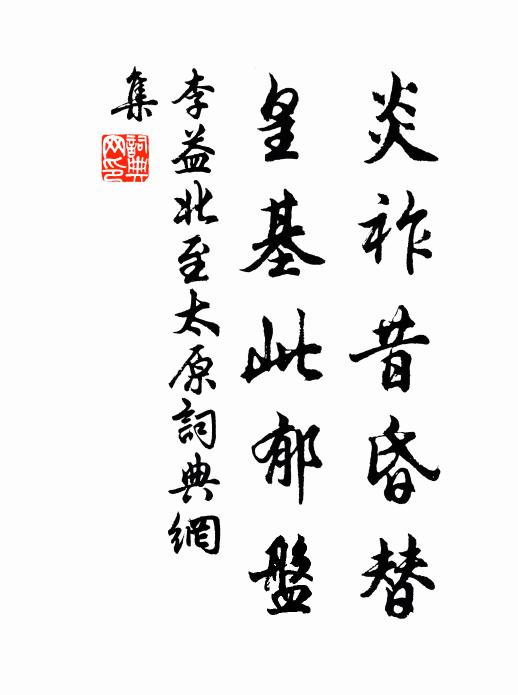 炎祚昔昏替
皇基此郁盤
李益北至太原詞典網
集
詞典
网印